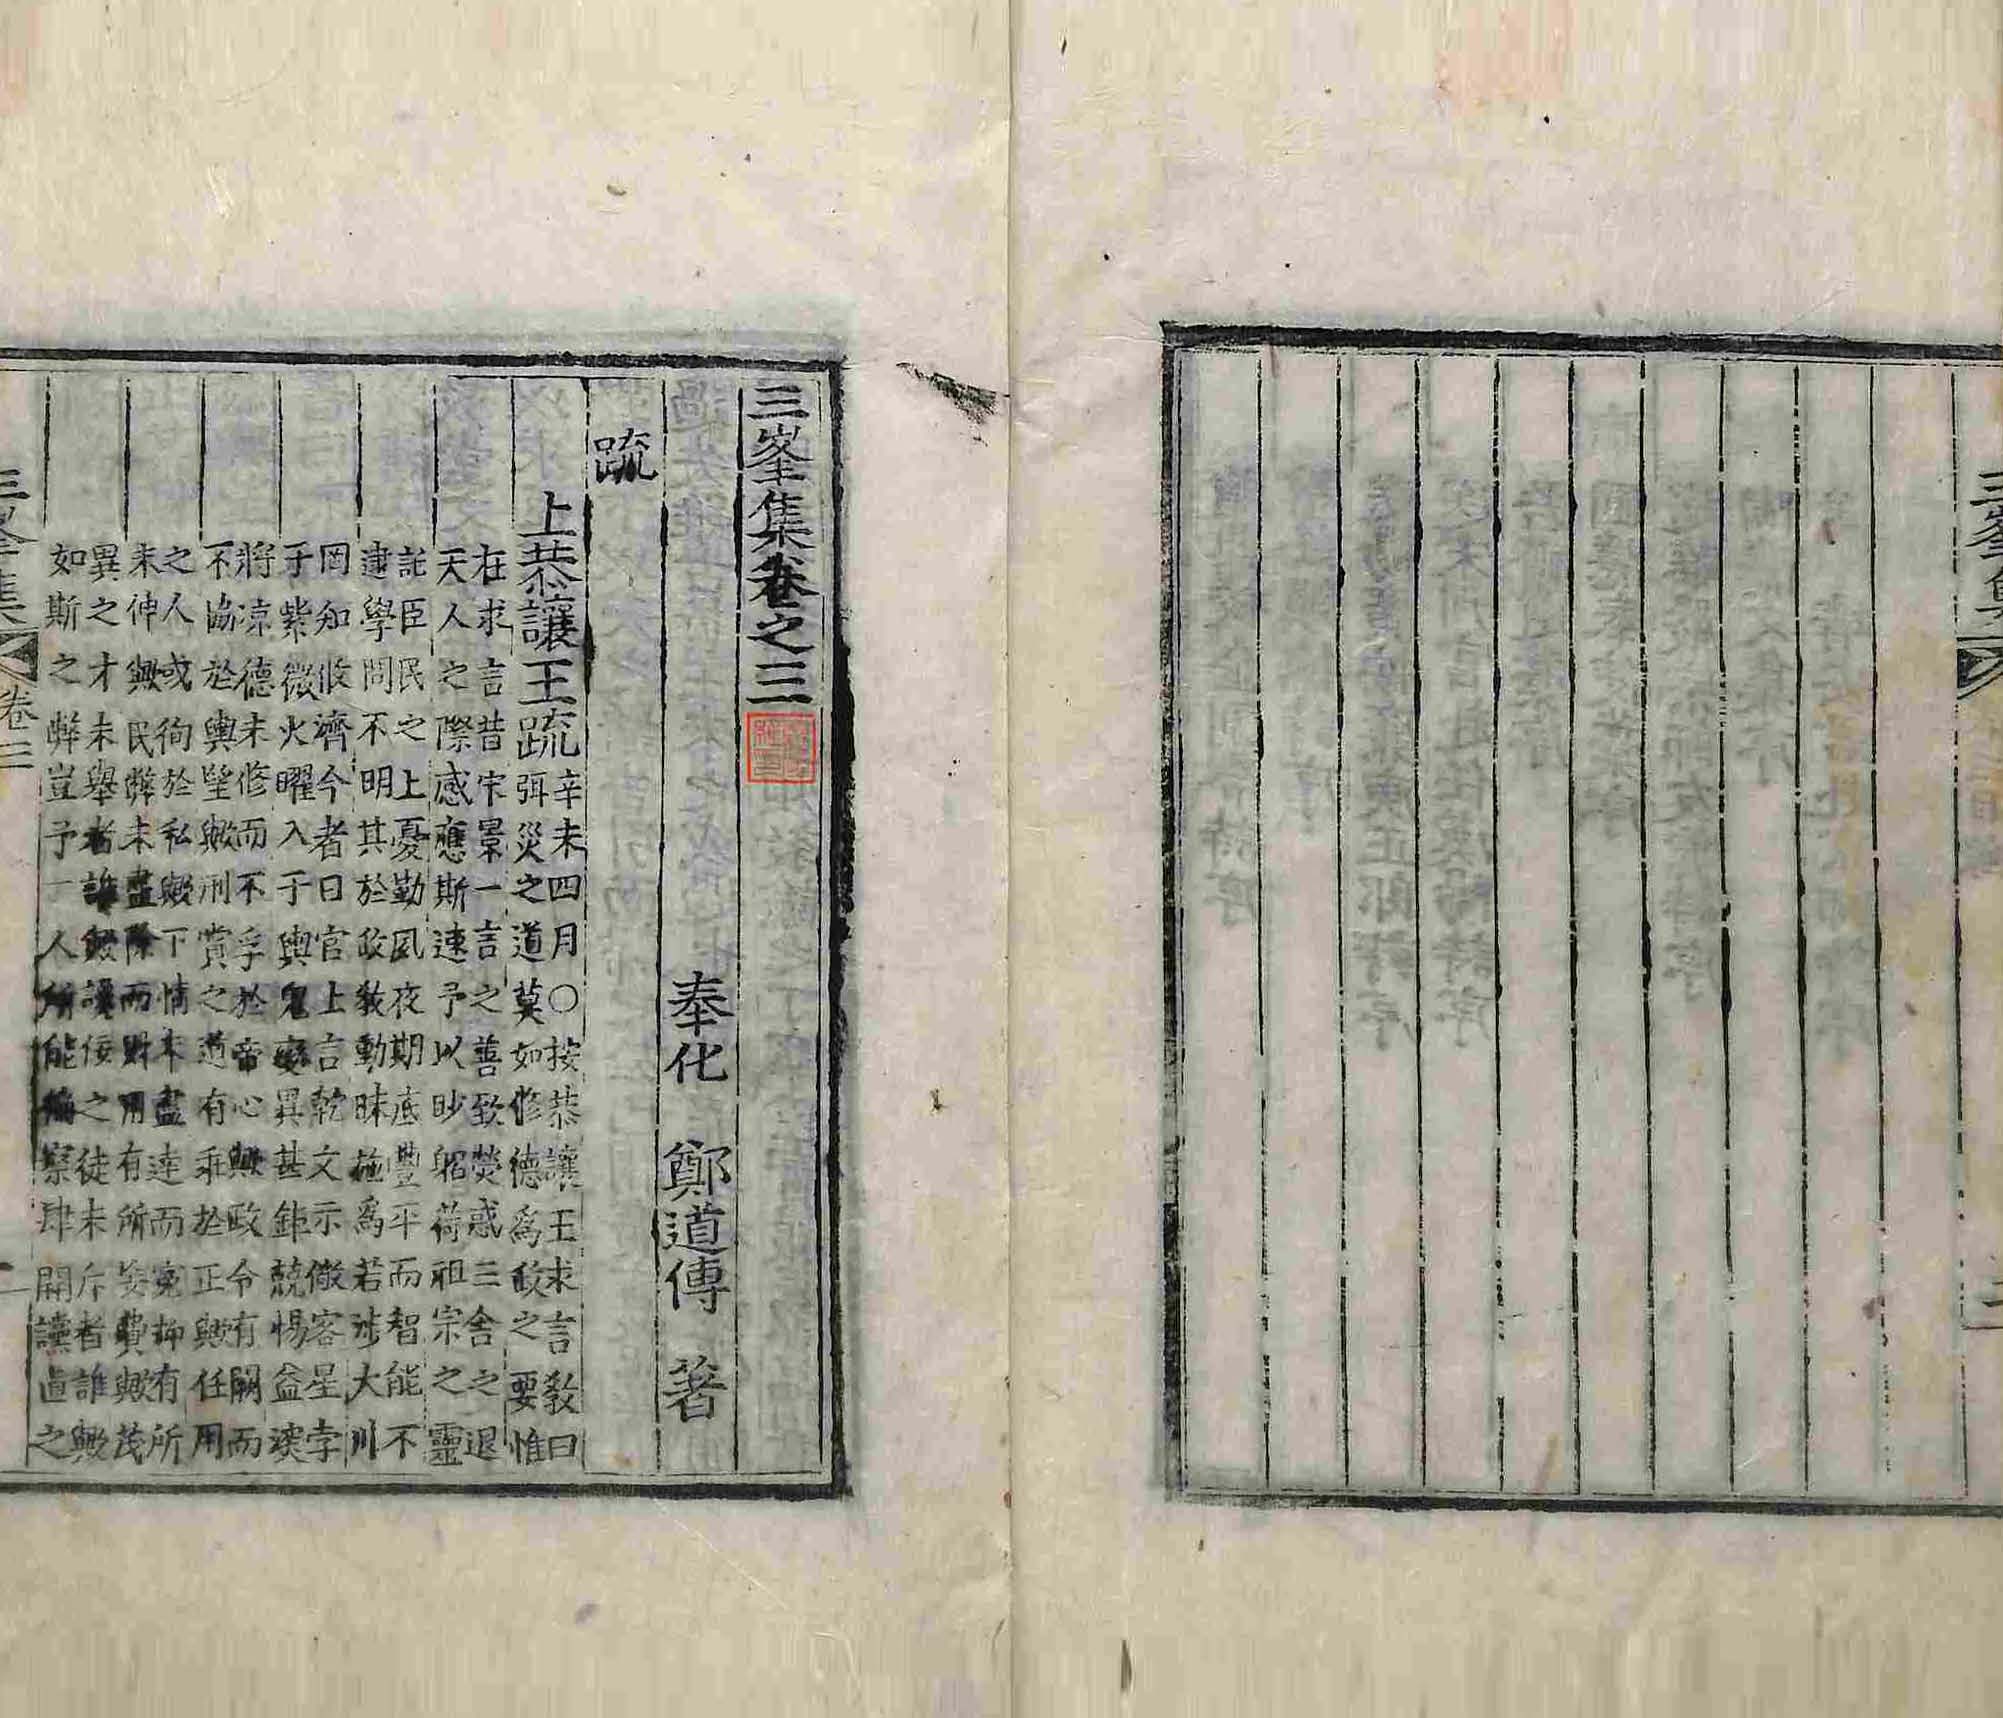 三峯集
三峯集卷之三
奉化 鄭道傳 著
疏
上恭讓王疏
辛未四月○按恭讓王求言敎曰
弭災之道莫如修德爲政之要惟
在求言昔宋景一言之善致熒惑三舍之退
天人之際感應斯速予以眇躬荷祖宗之靈
託臣民之上憂勤夙夜期底豐平而智能不
逮學問不明其於政敎動昧施爲若涉大川
罔知攸濟今者日官上言乾文示儆客星孛
于紫微火曜入于輿鬼變異甚鉅兢惕益深
將凉德未修而不孚於帝心歟政令有闕而
不協於輿望歟刑賞之道有乖於正歟任用
之人或徇於私歟下情未盡達而寃抑有所
未伸歟民弊未盡除而財用有所妄費歟茂
異之才未擧者誰歟讒佞之徒未斥者誰歟
如斯之弊豈予一人所能徧察肆開讜直之
三峯集 卷三 一